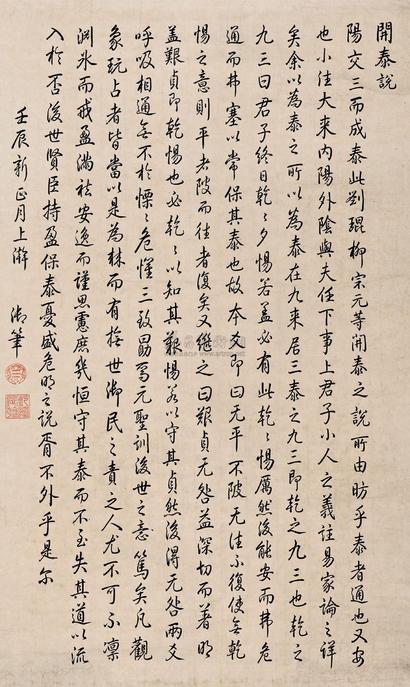 開泰說
陽交三而成泰此劉琨柳宗元等開泰之說所由昉乎泰者通也又安
也小往大來內陽外陰與夫任下事上君子小人之義註易家論之詳
矣余以為泰之所以為泰在九來居三泰之九三即乾之九三也乾之
九三曰君子終日乾乾夕惕若蓋必有此乾乾惕厲然後能安而弗危
通而弗塞以常保其泰也故本爻即曰无平不陂无往不復使無乾
惕之意則平者陂而往者復矣又繼之曰艱貞无咎益深切而著明
蓋艱貞即乾惕也必乾乾以知其艱惕若以守其貞然後得无咎兩爻
呼吸相通無不於慄慄危懼三致勗焉元聖訓後世之意篤矣凡觀
象玩占者皆當以是為林而有撫世御民之責之人尤不可不凜
淵冰而戒盈滿祛安逸而謹思慮庶幾恒守其泰而不至失其道以流
入於否後世賢臣持盈保泰憂盛危明之說胥不外乎是尔
壬辰新正月上澣
御筆